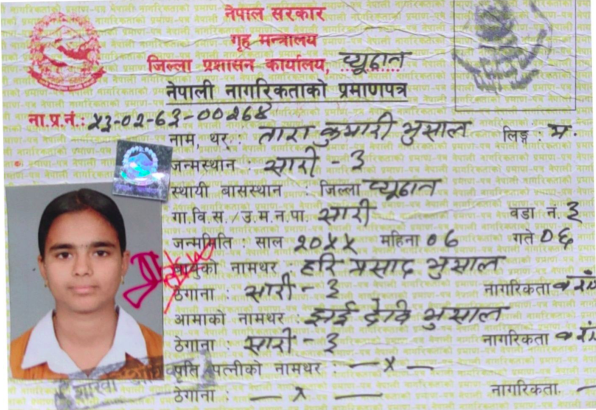 नेपाल सरकार
गृह मन्त्रालय
जिल्ला प्रशासन कार्यालय, प्यूठान
नेपाली नागरिकताको प्रमाणपत्र
ना.प्र.नं.: ५३-०२-६३-००२६४
नाम, थर: तारा कुमारी भुसाल लिङ्ग: म.
जन्मस्थान: सारी - ३
स्थायी बासस्थान: जिल्ला प्यूठान
गा.वि.स./उ.म.न.पा. सारी वडा नं. ३
जन्ममिति: साल २०४४ महिना ०६ गते ०६
बाबुको नामथर: हरि प्रसाद भुसाल
ठेगाना: सारी - ३ नागरिकता
आमाको नामथर: झई देवि भुसाल
ठेगाना: सारी - ३ नागरिकता
पति/पत्नीको नामथर: — x —
ठेगाना: — x — नागरिकता. —